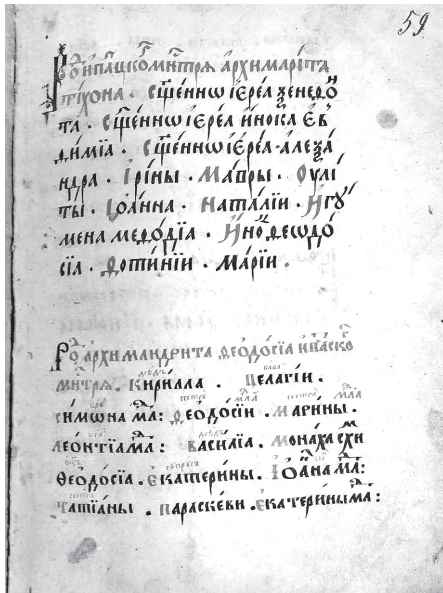 59
Рⷣо ипацкоⷢ мⷭтрѧ архимаріта
тіхона . сщ҃еннѡ іереѧ ѯенефѡ
та . сщ҃еннѡ іереѧ инока Єѵ
ѳиміа . сщ҃еннѡ іереѧ . алеѯа
ндра . Іріны . Маѵры . Оулі
ты . Іѡанна . Наталіи . Игꙋ
мена меѳодіа . Инⷪ ѳеѡдо
сіа . Фотиніи . маріи .
Роⷣ архимандрита Ѳеодосіа ипⷶцско
мⷭтрѧ . дѣдъ Кирилла . баба Пелагіи .
симѡна млⷣа : сестра Ѳеодосіи . сестра марины .
леонтіа млⷣа : дѣдъ василіа . монаха схи
ѳеодосіа . супруга Екатерины . Іѡана млⷣа :
Татіаны . параскеви . екатерины млⷣа :